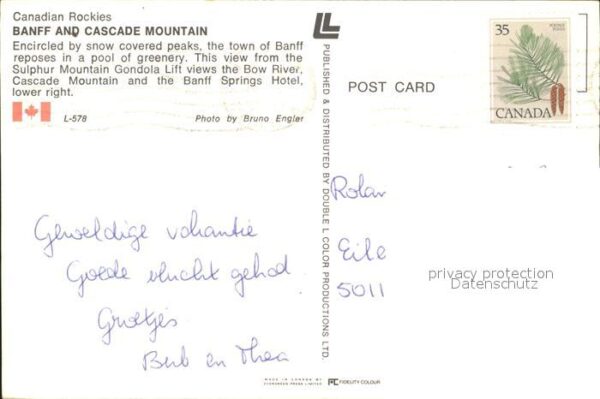 Canadian Rockies
BANFF AND CASCADE MOUNTAIN
Encircled by snow covered peaks, the town of Banff
reposes in a pool of greenery. This view from the
Sulphur Mountain Gondola Lift views the Bow River,
Cascade Mountain and the Banff Springs Hotel,
lower right.
L-578 Photo by Bruno Engler
LL
PUBLISHED & DISTRIBUTED BY DOUBLE L COLOR PRODUCTIONS LTD.
POST CARD
35
CANADA
Geweldige vakantie
Goede vlucht gehad
Groetjes
Bub en Thea
Eile
5011
privacy protection
Datenschutz
MADE IN LONDON BY
EVERGREEN PRESS LIMITED
FIDELITY COLOUR